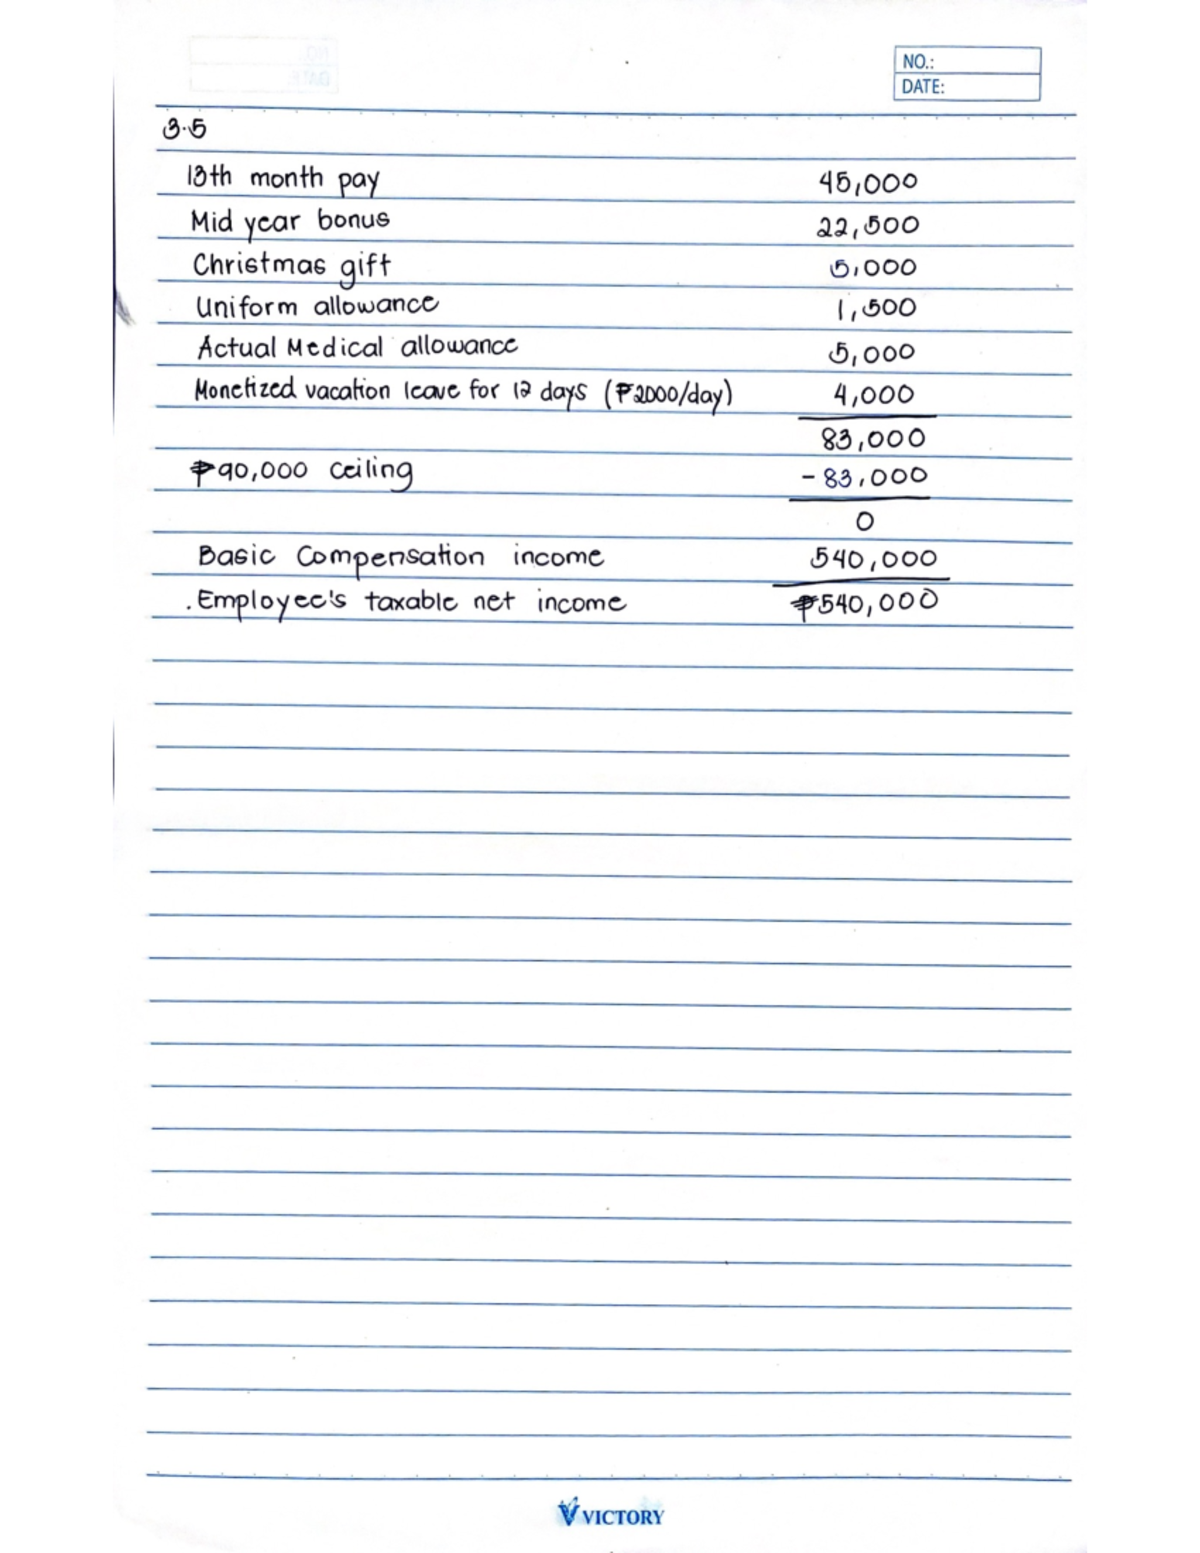 NO.:
DATE:
3.5
13th month pay 45,000
Mid year bonus 22,500
Christmas gift 5,000
Uniform allowance 1,500
Actual Medical allowance 5,000
Monetized vacation leave for 12 days (₱2000/day) 4,000
83,000
₱90,000 ceiling - 83,000
0
Basic Compensation income 540,000
Employee's taxable net income ₱540,000
VICTORY